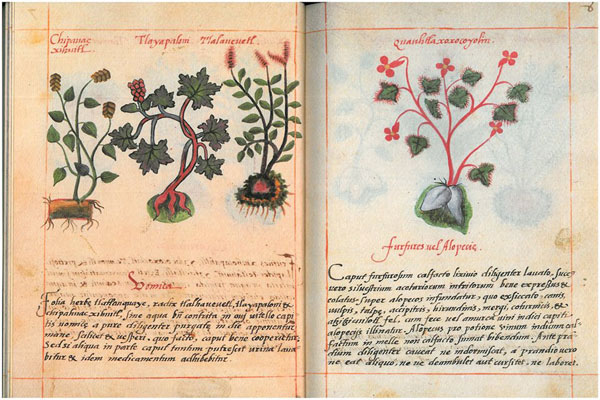 Chipauac
xihuitl.
Tlayapalom.
Tlalaueuetl.
Vomica
Folia herbę tlatlanquaye, radix tlalhaueuetl, tlayapaloni &
chipahuac xihuitl, sine aqua bñ contrita in oui vitello capi
tis vomicę a pure diligenter purgatę in die apponentur
mane scilicet & vesperi, quo facto, caput bene cooperietur.
Sed si aliqua in parte caput tantum putrescit urina laua
bitur & idem medicamentum adhibebitur.
Quauhtla xoxocoyolin.
Furfures vel Alopecis.
Caput furfurosum calfacto lixiuio diligenter lauato, succus
vero siluestrium acetariorum intritorum bene expressus &
colatus super alopeces infundetur: quo exsiccato: canis,
vulpis, talpę, accipitris, hirundinis, mergi, coturnicis, &
atzitzicuilotl fel, cum fece vel amurca vini indici capiti
alopecijs illinatur. Alopecus pro potione vinum indicum cal
factum in melle non calfacto sumat bibendum. Ante pran
dium diligenter caueat ne indormiscat, a prandio vero
ne eat aliquo, ne deambulet aut cursitet, ne laboret.